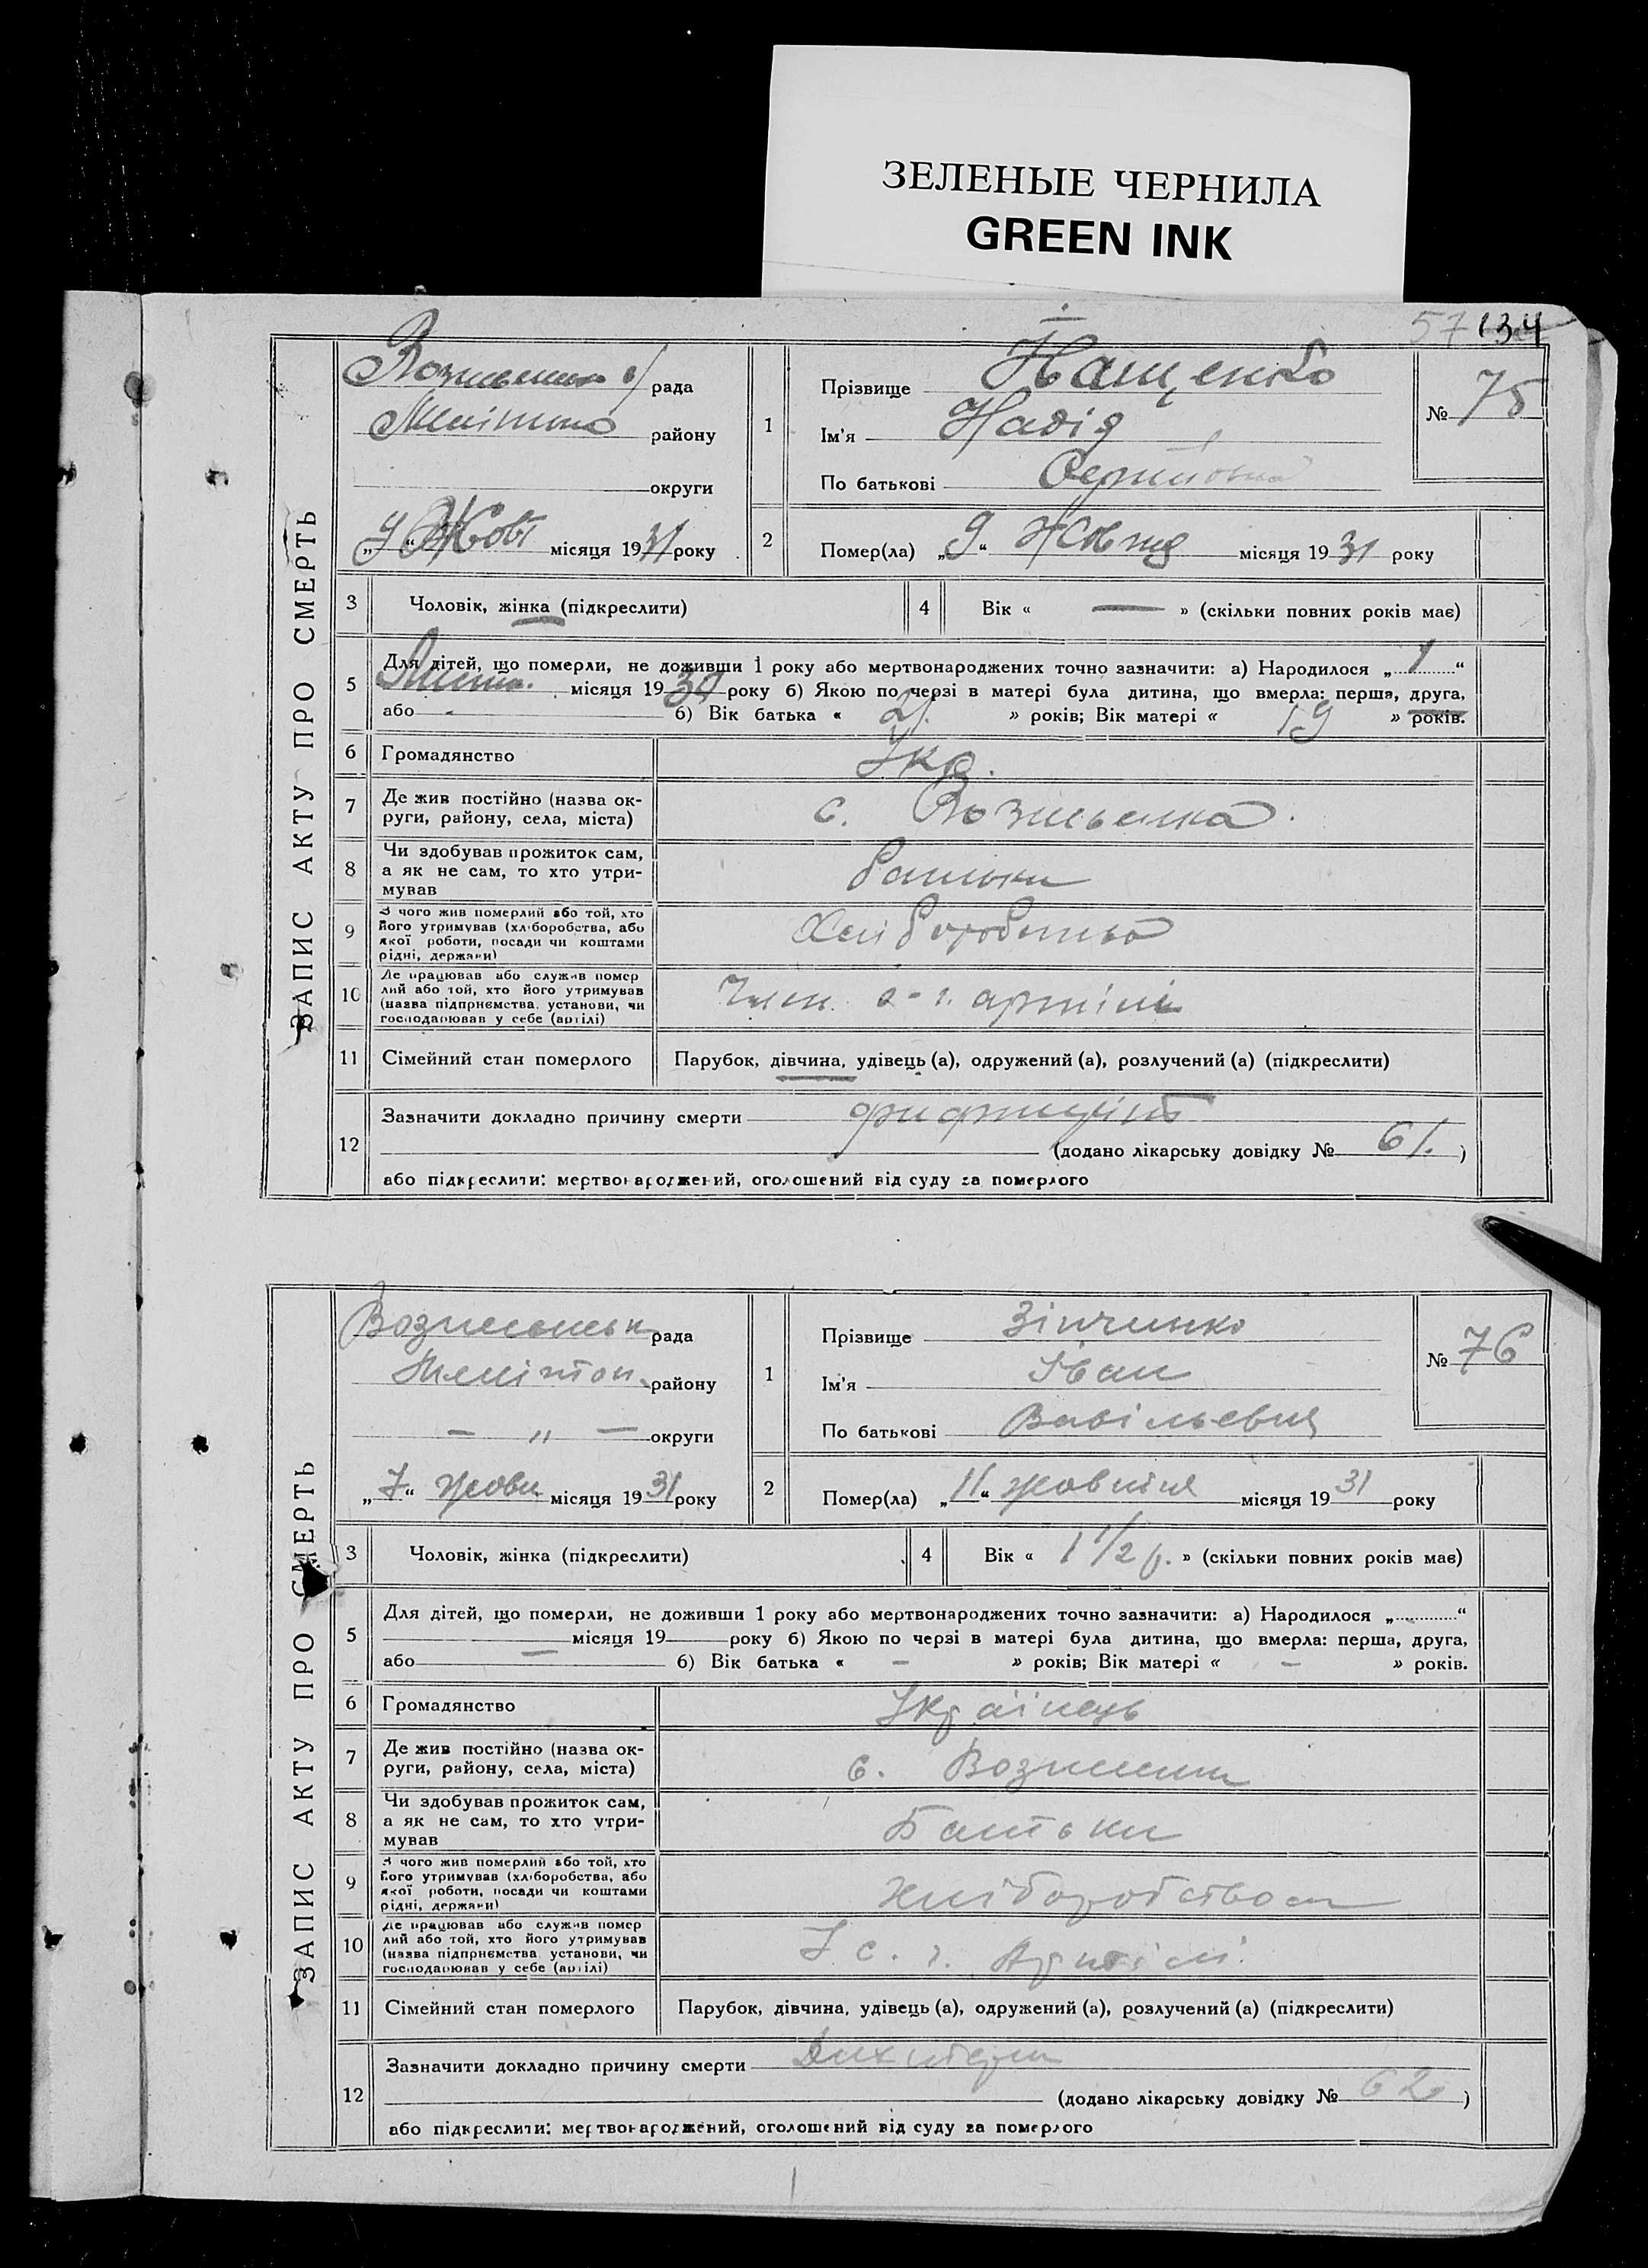 ЗЕЛЕНЫЕ ЧЕРНИЛА
GREEN INK
57 134
ЗАПИС АКТУ ПРО СМЕРТЬ
рада
району
округи
місяця 1931 року
1
Прізвище
Ім'я Надія
По батькові
№ 75
2
Помер(ла) „9“ Жовтня місяця 1931 року
3 Чоловік, жінка (підкреслити)
4 Вік « — » (скільки повних років має)
5 Для дітей, що померли, не доживши 1 року або мертвонароджених точно зазначити: а) Народилося „1“
місяця 1930 року б) Якою по черзі в матері була дитина, що вмерла: перша, друга,
або - б) Вік батька « 21 » років; Вік матері « 19 » років.
6 Громадянство Укр.
7 Де жив постійно (назва ок-
руги, району, села, міста) с.
8 Чи здобував прожиток сам,
а як не сам, то хто утри-
мував батьки
9 З чого жив померлий або той, хто
його утримував (хліборобства, або
якої роботи, посади чи коштами
рідні, держави)
10 Де працював або служив помер
лий або той, хто його утримував
(назва підприємства, установи, чи
господарював у себе (артілі) Член с-г. артілі
11 Сімейний стан померлого Парубок, дівчина, удівець (а), одружений (а), розлучений (а) (підкреслити)
12 Зазначити докладно причину смерти
(додано лікарську довідку № 61. )
або підкреслити: мертвонароджений, оголошений від суду за померлого
ЗАПИС АКТУ ПРО СМЕРТЬ
рада
району
— „ — округи
„7“ жовт. місяця 1931 року
1
Прізвище Зінченко
Ім'я Іван
По батькові
№ 76
2
Помер(ла) „11“ жовтня місяця 1931 року
3 Чоловік, жінка (підкреслити)
4 Вік « 1 1/2 р. » (скільки повних років має)
5 Для дітей, що померли, не доживши 1 року або мертвонароджених точно зазначити: а) Народилося „ “
місяця 19 року б) Якою по черзі в матері була дитина, що вмерла: перша, друга,
або — б) Вік батька « – » років; Вік матері « – » років.
6 Громадянство Українець
7 Де жив постійно (назва ок-
руги, району, села, міста) с.
8 Чи здобував прожиток сам,
а як не сам, то хто утри-
мував Батьки
9 З чого жив померлий або той, хто
його утримував (хліборобства, або
якої роботи, посади чи коштами
рідні, держави) хліборобством
10 Де працював або служив помер
лий або той, хто його утримував
(назва підприємства, установи, чи
господарював у себе (артілі) У с. г. Артілі.
11 Сімейний стан померлого Парубок, дівчина, удівець (а), одружений (а), розлучений (а) (підкреслити)
12 Зазначити докладно причину смерти
(додано лікарську довідку № 62 )
або підкреслити: мертвонароджений, оголошений від суду за померлого